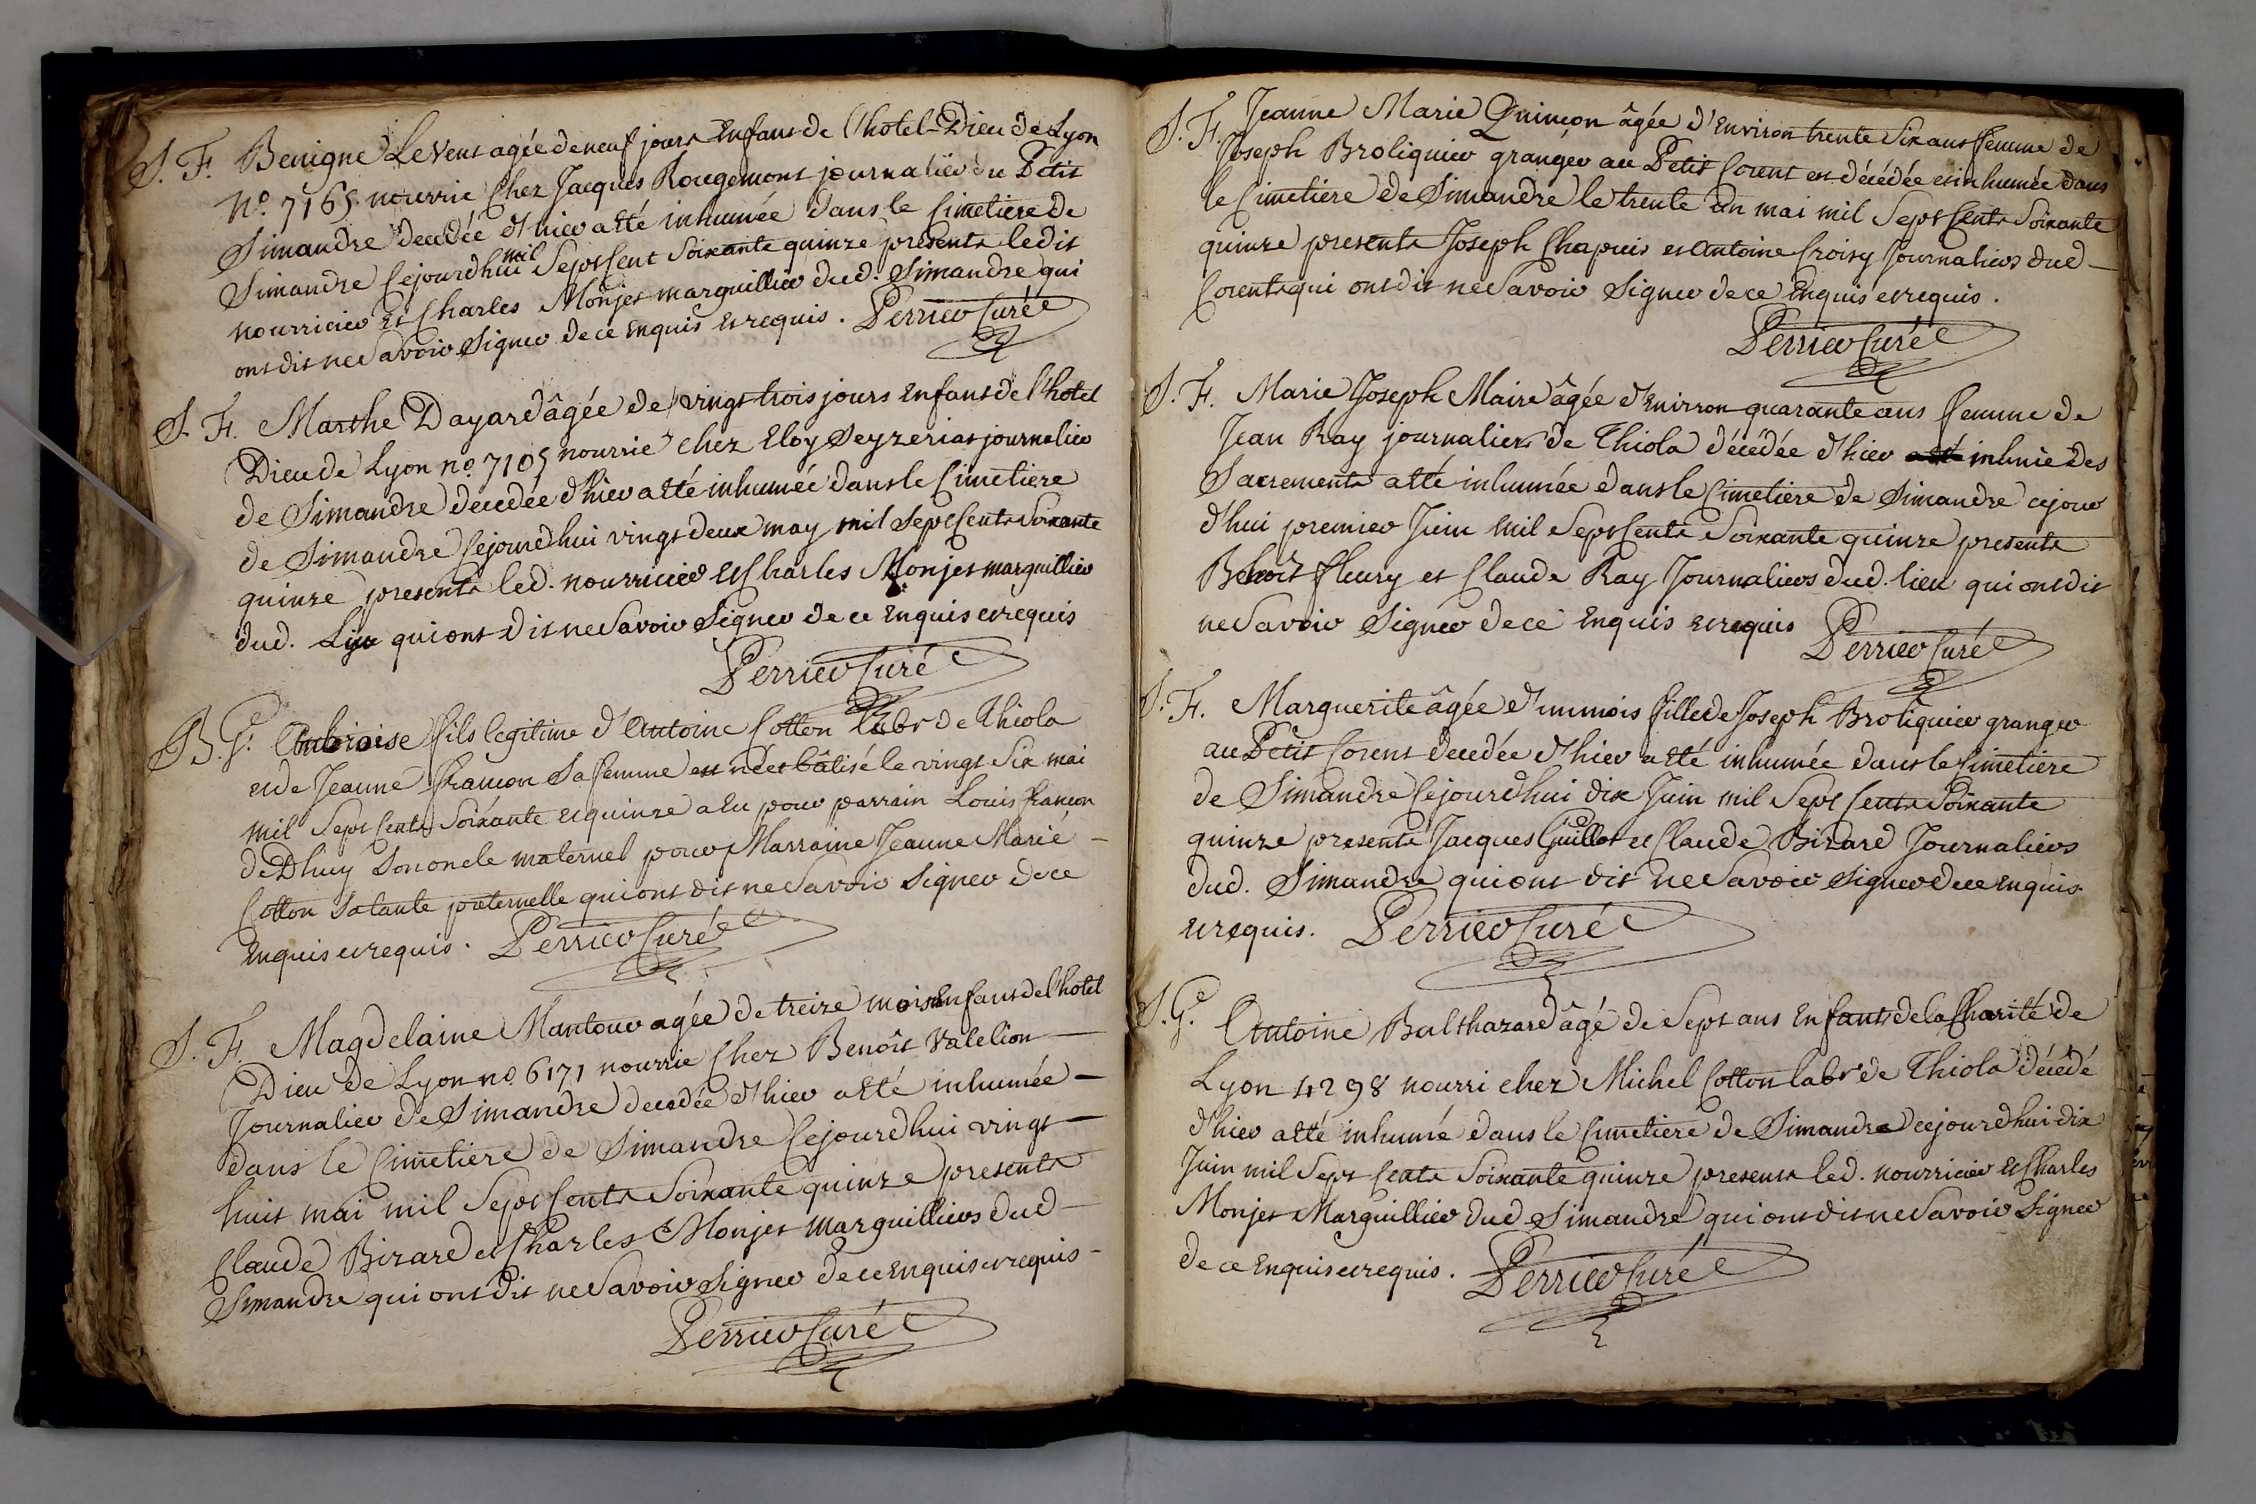 S. F. Benigne Levent agée de neuf jours Enfant de l'hotel-Dieu de Lyon
N.º 7165 nourrie chez Jacques Rougemont journalier du Petit
Simandre decedée d'hier a été inhumée dans le Cimetiere de
Simandre Cejourdhui mil Sept Cent Soixante quinze presents ledit
nourricier et Charles Monjet marguillier dud. Simandre qui
ont dit ne Savoir Signer de ce Enquis et requis. Perrier Curé
S. F. Marthe Dayard âgée de vingt trois jours enfant de l'hotel
Dieu de Lyon nº. 7105 nourrie chez Eloy Seyzeriat journalier
de Simandre decedée d'hier a été inhumée dans le Cimetiere
de Simandre Cejourdhui vingt deux may mil Sept Cents Soixante
quinze presents led. nourricier et Charles Monjet marguillier
dud. Lieu qui ont dit ne Savoir Signer de ce enquis et requis
Perrier Curé
B. G. Ambroise fils legitime d'Antoine Cotton Labr de Thiola
et de Jeanne françon Sa femme est né et bâtisé le vingt Six mai
mil Sept Cents Soixante et quinze a Eu pour parrain Louis françon
de Dhuy Son oncle maternel pour Marraine Jeanne Marie
Cotton Sa tante paternelle qui ont dit ne Savoir Signer de ce
enquis et requis. Perrier Curé
S. F. Magdelaine Mantour agée de treize mois Enfant de l'hotel
Dieu de Lyon nº. 6171 nourrie Chez Benôit Valelion
Journalier de Simandre decedée d'hier a été inhumée
dans le Cimetiere de Simandre Cejourdhui vingt
huit mai mil Sept Cents Soixante quinze presents
Claude Bizard et Charles Monjet marguilliers dud
Simandre qui ont dit ne Savoir Signer de ce Enquis et requis
Perrier Curé
S. F. Jeanne Marie Quinçon âgée d'Environ trente Six ans femme de
Joseph Broliquier granger au Petit Corent est décédée et inhumée dans
le Cimetiere de Simandre le trente un mai mil Sept Cents Soixante
quinze presents Joseph Chapuis et Antoine Croisy Journaliers dud
Corent qui ont dit ne Savoir Signer de ce Enquis et requis.
Perrier Curé
S. F. Marie Joseph Maire âgée d'Environ quarante ans femme de
Jean Ray journalier de Thiola décédée d'hier inhmie des
Sacrements a été inhumée dans le Cimetiere de Simandre cejour
d'hui premier Juin mil Sept Cents Soixante quinze presents
Benoit fleury et Claude Ray Journaliers dud. lieu qui ont dit
ne Savoir Signer de ce Enquis et requis Perrier Curé
S. F. Marguerite âgée d'un mois fille de Joseph Broliquier granger
au Petit Corent decedée d'hier a été inhumée dans le Cimetiere
de Simandre Cejourdhui dix Juin mil Sept Cents Soixante
quinze presents Jacques Guillot et Claude Bizard Journaliers
dud. Simandre qui ont dit ne Savoir Signer de ce enquis
et requis. Perrier Curé
S. G. Antoine Balthazard âgé de Sept ans Enfant de la Charité de
Lyon 4298 nourri chez Michel Cotton labr de Thiola décédé
d'hier a été inhumé dans le Cimetiere de Simandre cejourdhui dix
Juin mil Sept Cents Soixante quinze presents led. nourricier et Charles
Monjet Marguillier dud. Simandre qui ont dit ne Savoir Signer
de ce Enquis et requis. Perrier Curé